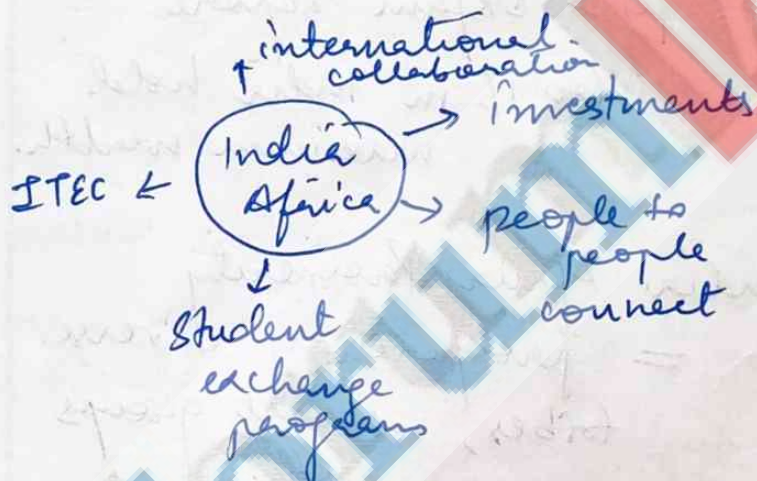 international
collaboration
investments
India
Africa
ITEC
people to
people
connect
Student
exchange
programs